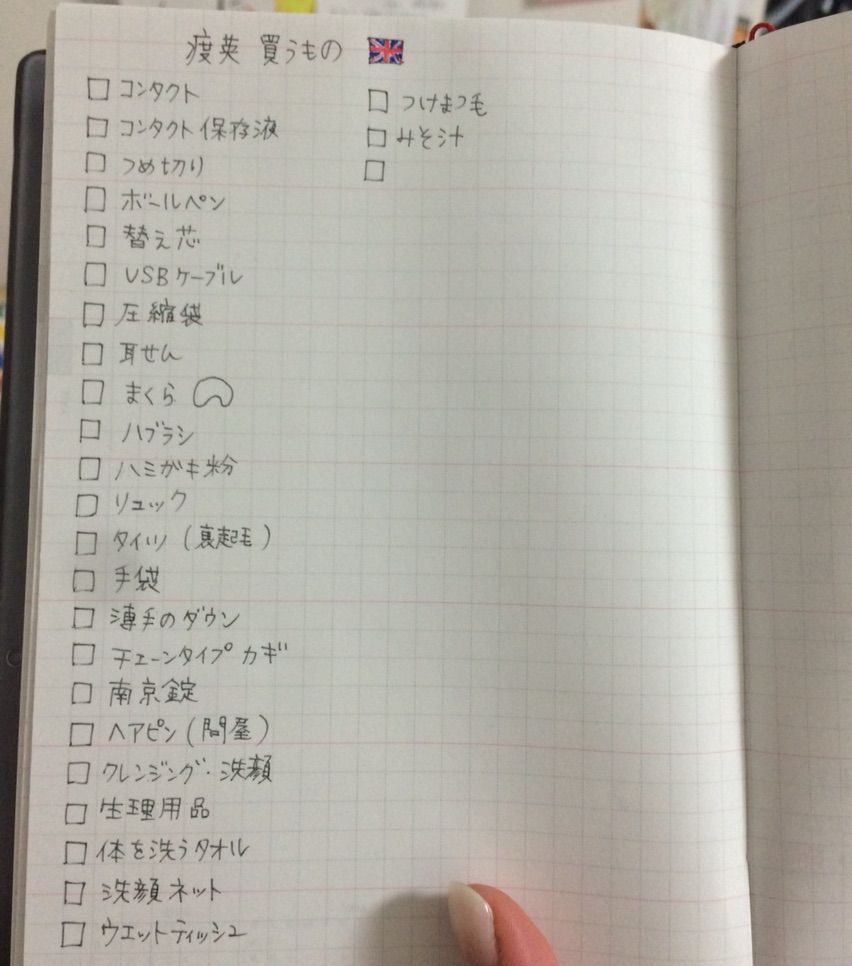 渡英 買うもの
コンタクト
コンタクト保存液
つめ切り
ボールペン
替え芯
USBケーブル
圧縮袋
耳せん
まくら
ハブラシ
ハミガキ粉
リュック
タイツ(裏起毛)
手袋
薄手のダウン
チェーンタイプ カギ
南京錠
ヘアピン(問屋)
クレンジング・洗顔
生理用品
体を洗うタオル
洗顔ネット
ウエットティッシュ
つけまつ毛
みそ汁